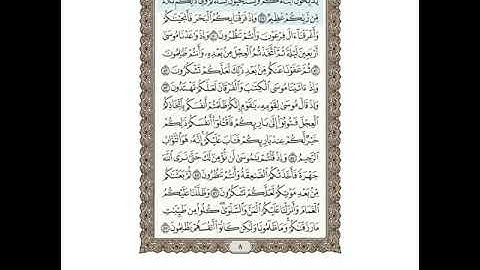 يُذَبِّحُونَ أَبْنَاءَكُمْ وَيَسْتَحْيُونَ نِسَاءَكُمْ وَفِي ذَٰلِكُمْ بَلَاءٌ
مِّن رَّبِّكُمْ عَظِيمٌ ﴿٤٩﴾ وَإِذْ فَرَقْنَا بِكُمُ الْبَحْرَ فَأَنجَيْنَاكُمْ
وَأَغْرَقْنَا آلَ فِرْعَوْنَ وَأَنتُمْ تَنظُرُونَ ﴿٥٠﴾ وَإِذْ وَاعَدْنَا مُوسَىٰ
أَرْبَعِينَ لَيْلَةً ثُمَّ اتَّخَذْتُمُ الْعِجْلَ مِن بَعْدِهِ وَأَنتُمْ ظَالِمُونَ
﴿٥١﴾ ثُمَّ عَفَوْنَا عَنكُم مِّن بَعْدِ ذَٰلِكَ لَعَلَّكُمْ تَشْكُرُونَ ﴿٥٢﴾
وَإِذْ آتَيْنَا مُوسَى الْكِتَابَ وَالْفُرْقَانَ لَعَلَّكُمْ تَهْتَدُونَ ﴿٥٣﴾
وَإِذْ قَالَ مُوسَىٰ لِقَوْمِهِ يَا قَوْمِ إِنَّكُمْ ظَلَمْتُمْ أَنفُسَكُم بِاتِّخَاذِكُمُ
الْعِجْلَ فَتُوبُوا إِلَىٰ بَارِئِكُمْ فَاقْتُلُوا أَنفُسَكُمْ ذَٰلِكُمْ
خَيْرٌ لَّكُمْ عِندَ بَارِئِكُمْ فَتَابَ عَلَيْكُمْ إِنَّهُ هُوَ التَّوَّابُ
الرَّحِيمُ ﴿٥٤﴾ وَإِذْ قُلْتُمْ يَا مُوسَىٰ لَن نُّؤْمِنَ لَكَ حَتَّىٰ نَرَى اللَّهَ
جَهْرَةً فَأَخَذَتْكُمُ الصَّاعِقَةُ وَأَنتُمْ تَنظُرُونَ ﴿٥٥﴾ ثُمَّ بَعَثْنَاكُم
مِّن بَعْدِ مَوْتِكُمْ لَعَلَّكُمْ تَشْكُرُونَ ﴿٥٦﴾ وَظَلَّلْنَا عَلَيْكُمُ
الْغَمَامَ وَأَنزَلْنَا عَلَيْكُمُ الْمَنَّ وَالسَّلْوَىٰ كُلُوا مِن طَيِّبَاتِ
مَا رَزَقْنَاكُمْ وَمَا ظَلَمُونَا وَلَٰكِن كَانُوا أَنفُسَهُمْ يَظْلِمُونَ ﴿٥٧﴾
٨